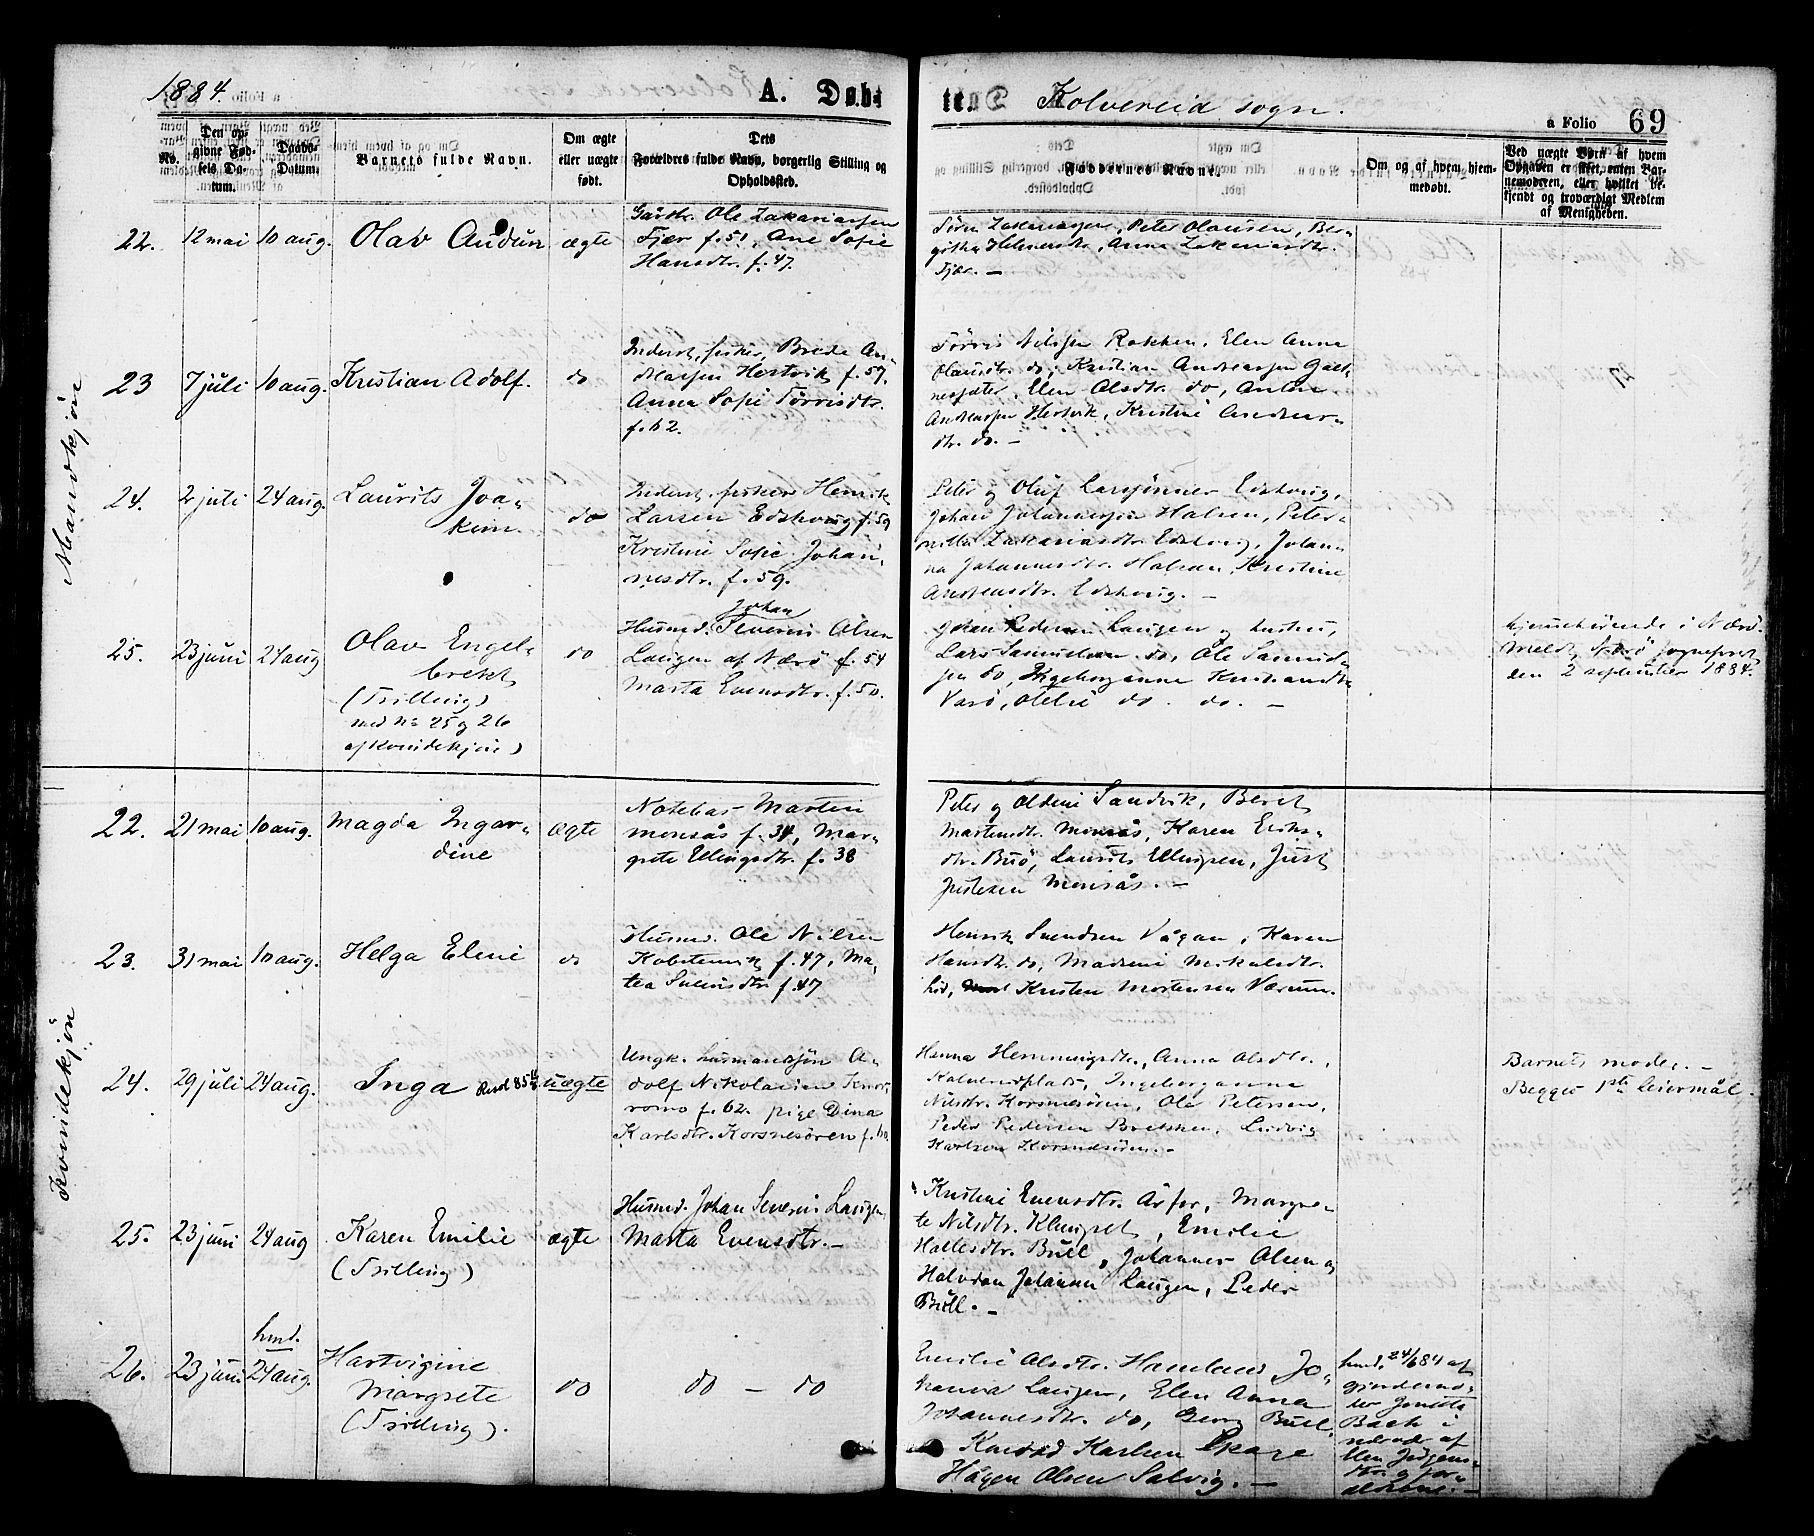 1884.
A. Døbte.
Kolvereid sogn.
a Folio 69
No.
Den opgivne Fødsels Datum.
Daabs-Datum.
Barnets fulde Navn.
Om ægte eller uægte født.
Dets Forældres fulde Navn, borgerlig Stilling og Opholdssted.
Faddernes Navne.
Om og af hvem hjemmedøbt.
Ved uægte Børn af hvem Opgaven er skeet, enten Barnemoderen, eller hvilket bekjendt og troværdigt Medlem af Menigheden.
Mandkjøn
22. 12 mai 10 aug. Olav Audun ægte
Gårdbr. Ole Zakariassen
Fjær f. 51, Ane Sofie
Hansdtr. f. 47.
Søren Zakariassen, Peter Olausen, Ber-
Anna Zakariasdtr.
Fjær. —
23 7 juli 10 aug. Kristian Adolf. do
Inderst, fisker, Brede An-
dreassen Hestvik f. 57,
Anna Sofie Tørrisdtr.
f. 62.
Tørris Nilssen Rokken, Elen Anna
Olausdtr. do, Kristian Andreassen Galt-
nesseter, Elen Olsdtr. do, Anton
Andreassen Hestvik, Kristine Andreas-
dtr. do. —
24. 2 juli 24 aug. Laurits Joa-
kim. do
Inderst, fisker Henrik
Larsen Edshoug f. 59
Kristine Sofie Johan-
nesdtr. f. 59.
Peter og Oluf Larssønner Edshoug,
Johan Johannessen Halsen, Peter-
nilla Zakariasdtr. Edshoug, Johan-
na Johannesdtr. Halsen, Kristine
Andreasdtr. Edshoug. —
25. 23 juni 24 aug Olav Engel-
brekt
(Trilling)
med No 25 og 26
af Kvindekjøn) do
Johan
Husmd. Severin Olsen
Laugen af Nærø f. 54
Marta Evensdtr. f. 50.
Johan Pedersen Laugen og hustru,
Lars Samuelsen do, Ole Samuel-
sen do, Ingeborganna Kristiansdtr.
Varø, Otelie do. do. —
hjemmehørende i Nærø.
Meldt Nærø sognepræst
den 2 september 1884.
Kvindekjøn
22. 21 mai 10 aug. Magda Ingar-
dine ægte
Notebas Martin
Monsås f. 34, Mar-
grete Ellingsdtr. f. 38
Peter og Oldine Sandvik, Beret
Martinsdtr. Monsås, Karen Eriks-
dtr. Buø, Laurits Ellingsen, Just
Justesen Monsås. —
23. 31 mai 10 aug. Helga Eline do
Husmd. Ole Nilsen
f. 47, Ma-
tea Svensdtr. f. 47
Henrik Svendsen Vågan, Karen
Hansdtr. do, Madsine Mikalsdtr.
Kristen Mortensen Værum.
24. 29 juli 24 aug. Inga uægte
Ungk. husmandssøn A-
dolf Nikolaisen
f. 62. pige Dina
Karlsdtr. Korsnesøren f. 60.
Hanna Hemmingsdtr., Anna Olsdtr.,
Kolvereidplads, Ingeborganna
Nilsdtr. Korsnesøren, Ole Petersen,
Peder Pedersen Brekken, Ludvig
Karlsen Korsnesøren. —
Barnets moder. —
Begges 1ste leiermål.
25. 23 juni 24 aug Karen Emilie
(Trilling) ægte
Husmd. Johan Severin Laugen,
Marta Evensdtr. —
Kristine Evensdtr. Årfor, Margre-
te Nilsdtr. Klungset, Emilie
Hallesdtr. Bull, Johannes Olsen og
Halvdan Johansen Laugen, Peder
Bull. —
hmd.
26. 23 juni 24 aug. Hartvigine
Margrete
(Trilling). do
do — do
Emilie Olsdtr. Hamland, Jo-
hanna Laugen, Elen Anna
Johannesdtr. do, Georg Bull,
Konrad Karlsen Skage
Hågen Olsen Salvig. —
hmd. 24/6 84 af
Bach i
af
Elen
dtr. og for-
ældrene. —